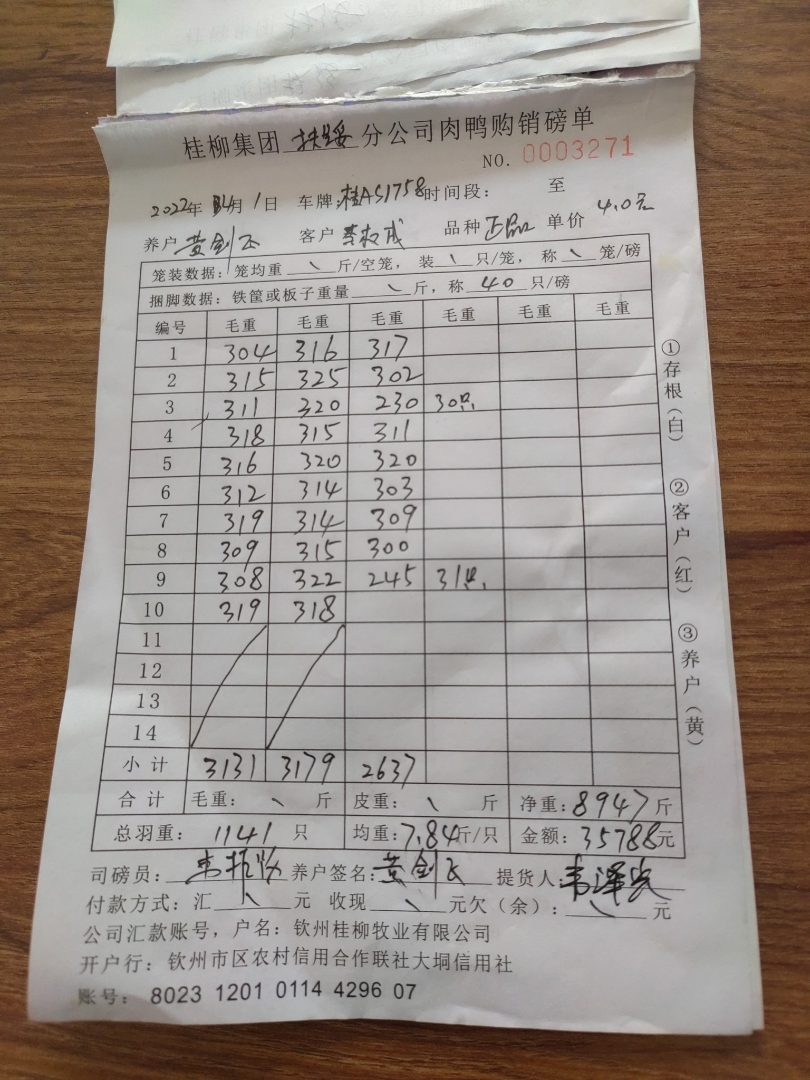 桂柳集团 扶绥 分公司肉鸭购销磅单
NO. 0003271
2022年 4月 1日 车牌:桂AS1758 时间段: 至
养户 黄剑飞 客户 李权成 品种 正品 单价 4.0元
笼装数据:笼均重 \ 斤/空笼,装 \ 只/笼,称 \ 笼/磅
捆脚数据:铁筐或板子重量 \ 斤,称 40 只/磅
编号 毛重 毛重 毛重 毛重 毛重 毛重
1 304 316 317
2 315 325 302
3 311 320 230 30只
4 318 315 311
5 316 320 320
6 312 314 303
7 319 314 309
8 309 315 300
9 308 322 245 31只
10 319 318
11
12
13
14
小计 3131 3179 2637
合计 毛重: \ 斤 皮重: \ 斤 净重:8947斤
总羽重: 1141 只 均重:7.84斤/只 金额:35788元
司磅员: 养户签名:黄剑飞 提货人:韦泽
付款方式:汇 \ 元 收现 \ 元欠(余): \ 元
公司汇款账号,户名:钦州桂柳牧业有限公司
开户行:钦州市区农村信用合作联社大垌信用社
账号: 8023 1201 0114 4296 07
①存根(白)
②客户(红)
③养户(黄)